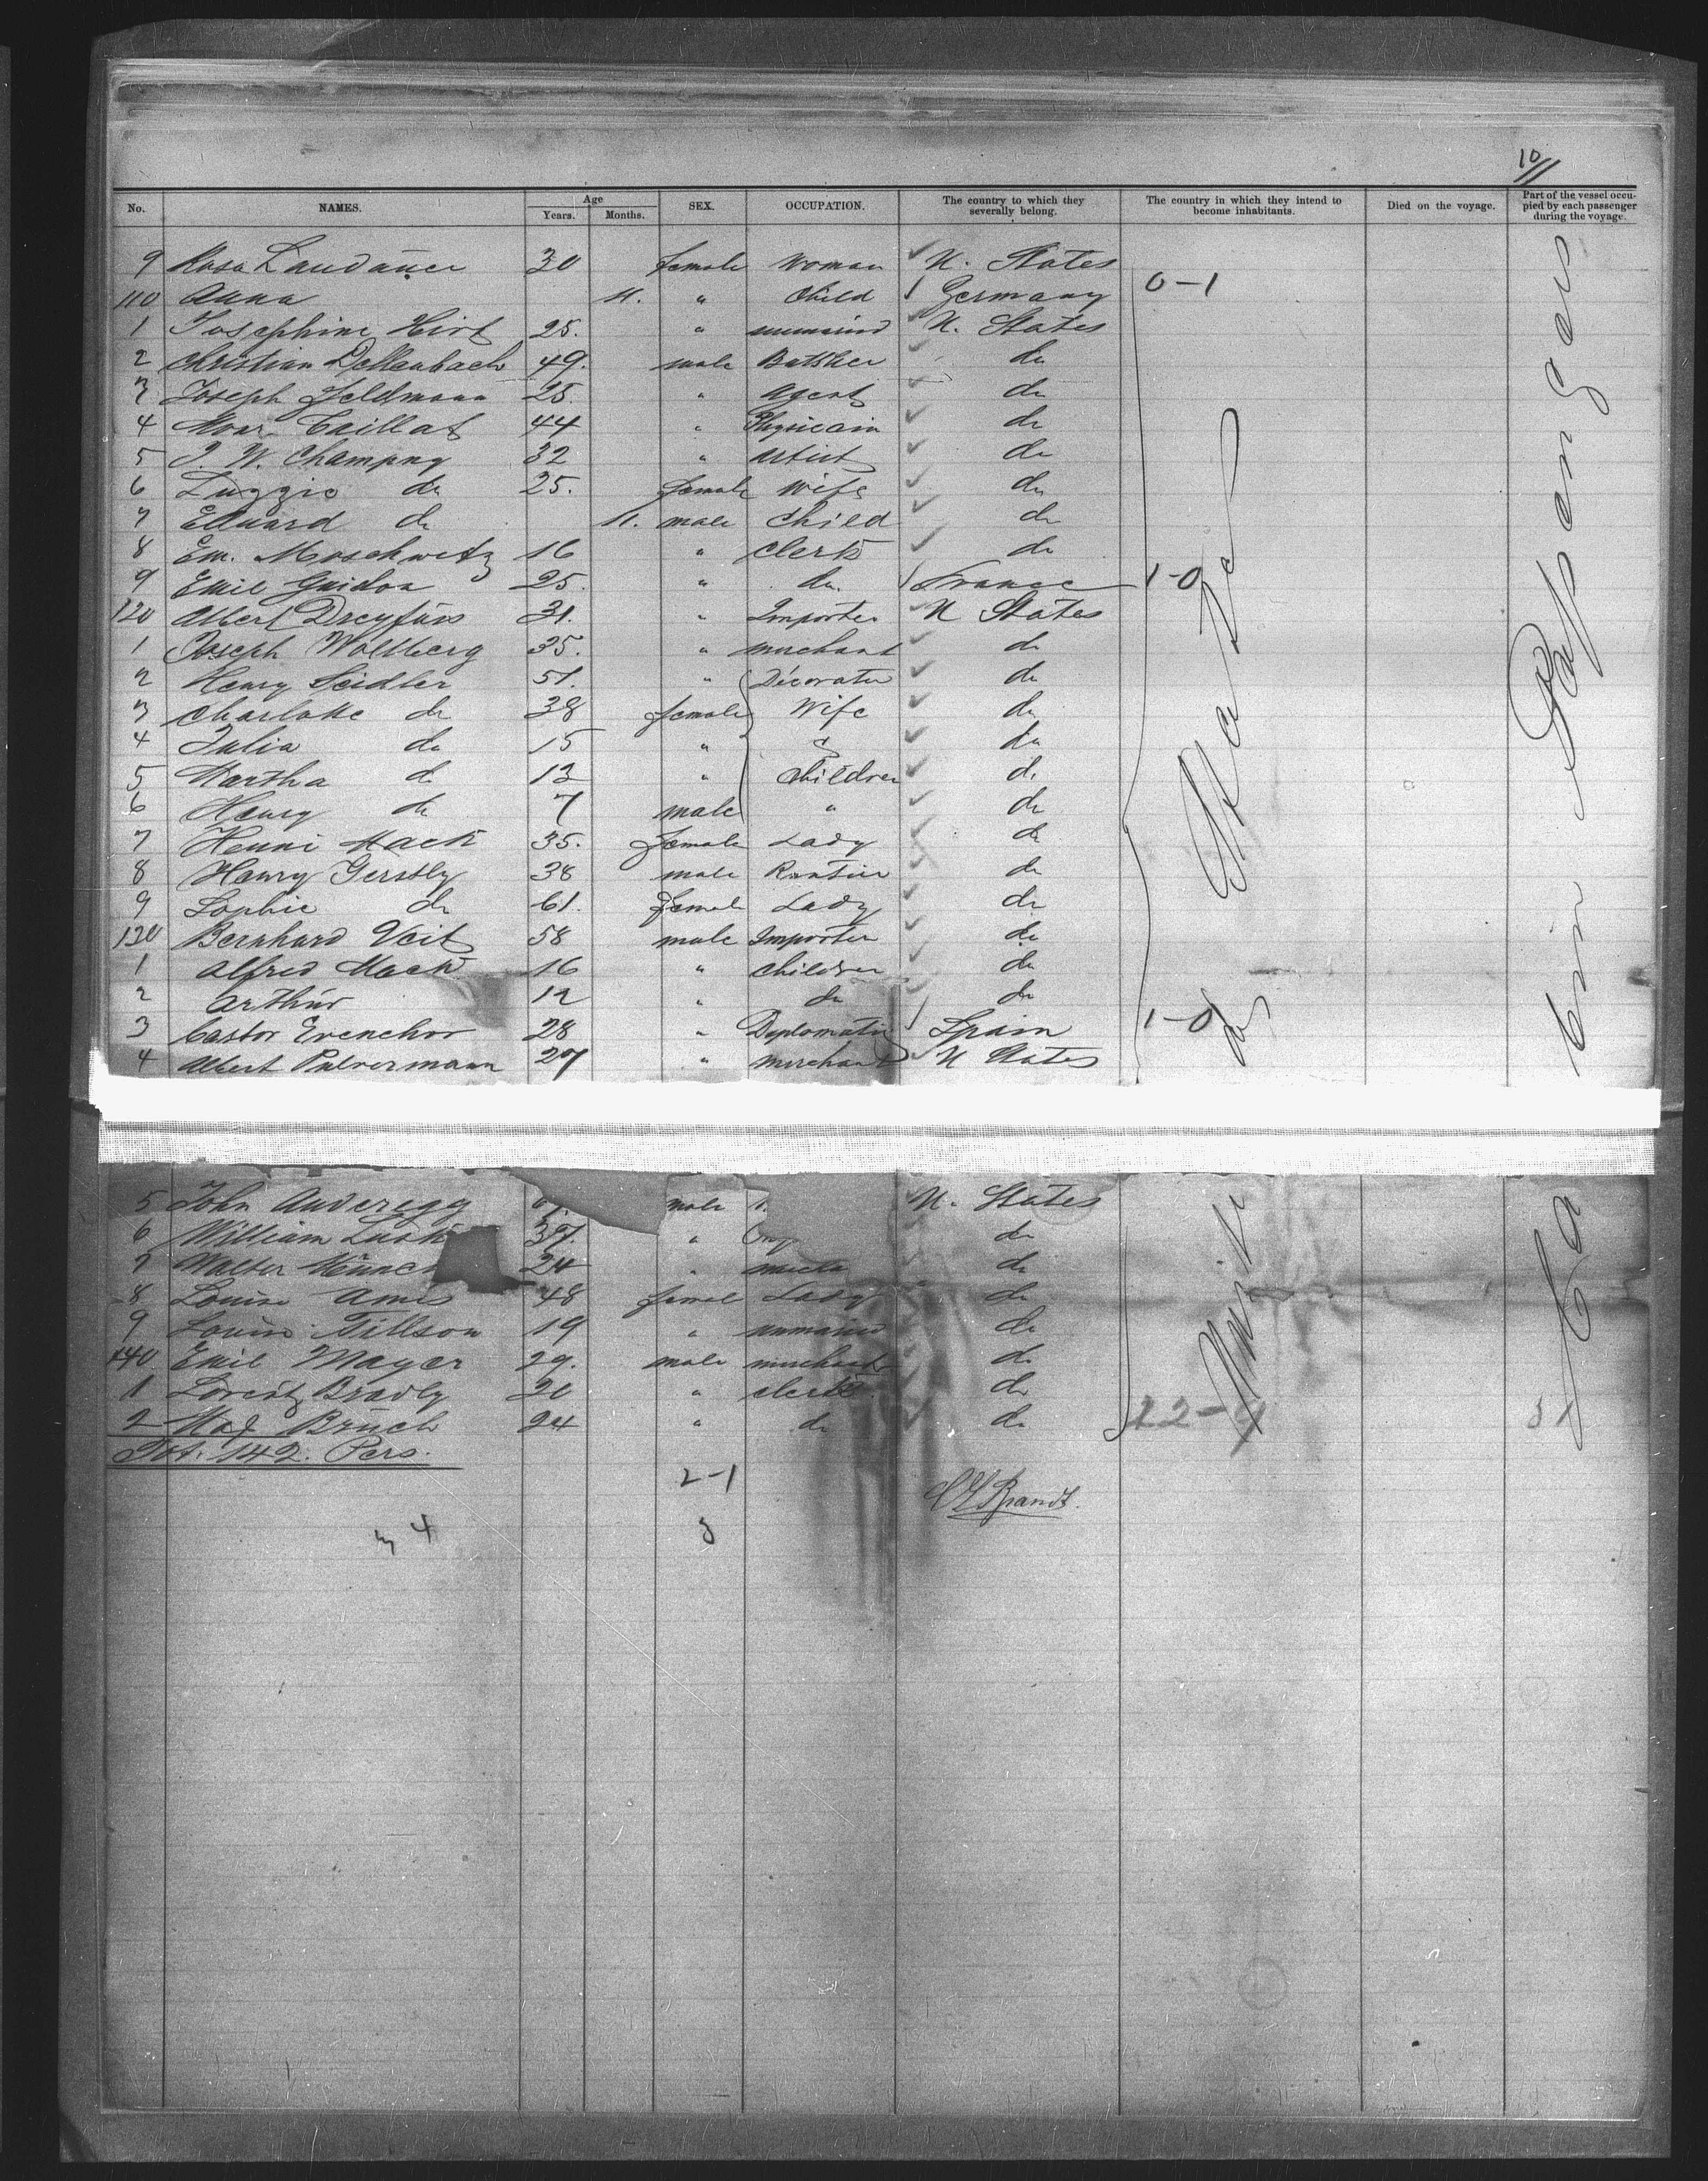 10/11
No. NAMES. Age Years. Months. SEX. OCCUPATION. The country to which they severally belong. The country in which they intend to become inhabitants. Died on the voyage. Part of the vessel occupied by each passenger during the voyage.
9 Rosa Landauer 30 female Woman U. States
110 Anna 11. " Child Germany 0-1
1 Josephine Hirt 25. " U. States
2 Christian Dellenbach 49. male Buttsher do
3 Joseph Feldmann 25. " Agent do
4 Caillat 44 " Physicain do
5 J. W. Champny 32 " Artist do
6 Luzzie do 25. female Wife do
7 Eduard do 11. male Child do
8 Em. Moschwitz 16 " Clerk do
9 Emil Guidon 25 " do. France 1-0
120 Albert Dreyfuss 31. " Importer U States
1 Joseph Wollberg 35. " merchant do
2 Henry Seidler 51. " Décorater do
3 Charlotte do 38 female Wife do
4 Julia do 15 " do
5 Martha do 13 " Children do
6 Henry do 7 male " do
7 Henni Mack 35. female Lady do
8 Henry Gerstly 38 male Rentier do
9 Sophie do 61. femal Lady do
130 Bernhard Veit 58 male Importer do
1 Alfred Mack 16 " Children do
2 Arthur 12 " do do
3 Castor Evenchor 28 " Diplomatic Spain 1-0
4 Albert Pulvermann 27 " merchant U States
5 John Anderegg male U. States
6 William 37. " do
7 Walter Münch 24 " do
8 Louise Ames 48 femal Lady do
9 Louise Tillson 19 " do
140 Emil Mayer 29. male merchant do
1 Lorentz Bradly 20 " clerk do
2 Max Bruch 24 " do do 22-4
Tot. 142. Pers.
2-1
C L Brandt.
4
3
United States
Cabin Passengers